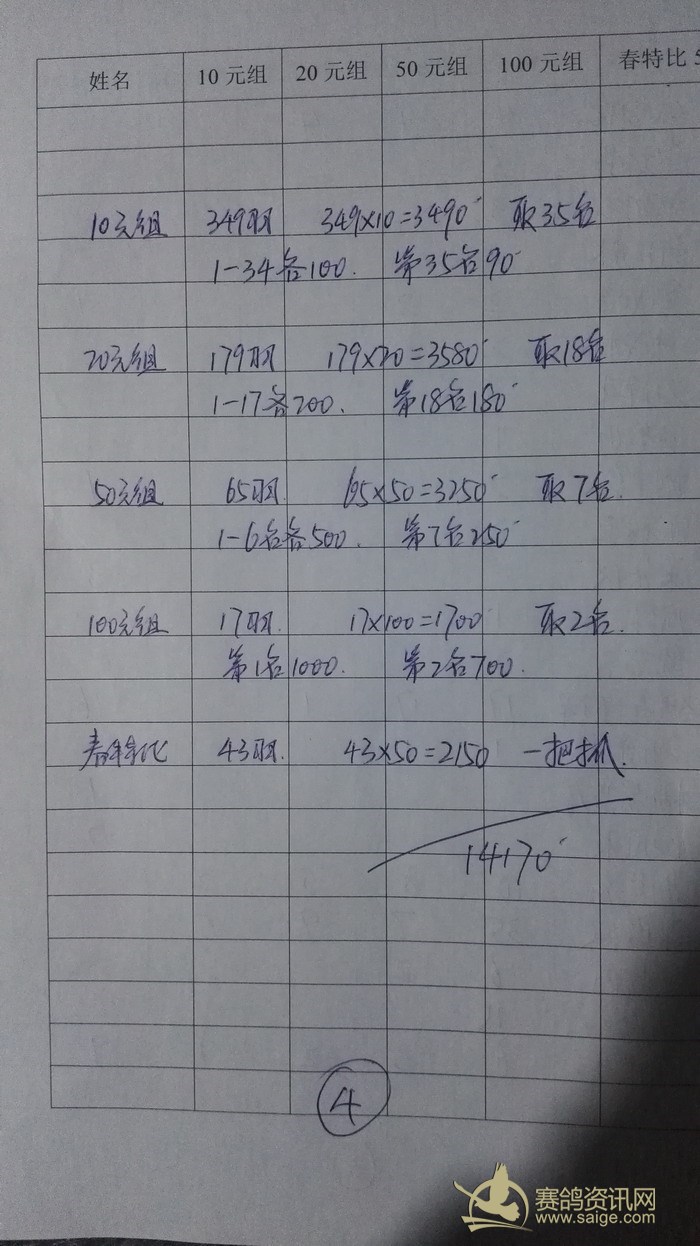 姓名 10元组 20元组 50元组 100元组 春特比5
10元组 349羽 349×10=3490 取35名
1-34各100. 第35名90
20元组 179羽 179×20=3580 取18名
1-17各200. 第18名180
50元组 65羽. 65×50=3250 取7名.
1-6名各500. 第7名250
100元组 17羽. 17×100=1700 取2名.
第1名1000. 第2名700.
春特比 43羽. 43×50=2150 一把抓.
14170
4
赛鸽资讯网
www.saige.com